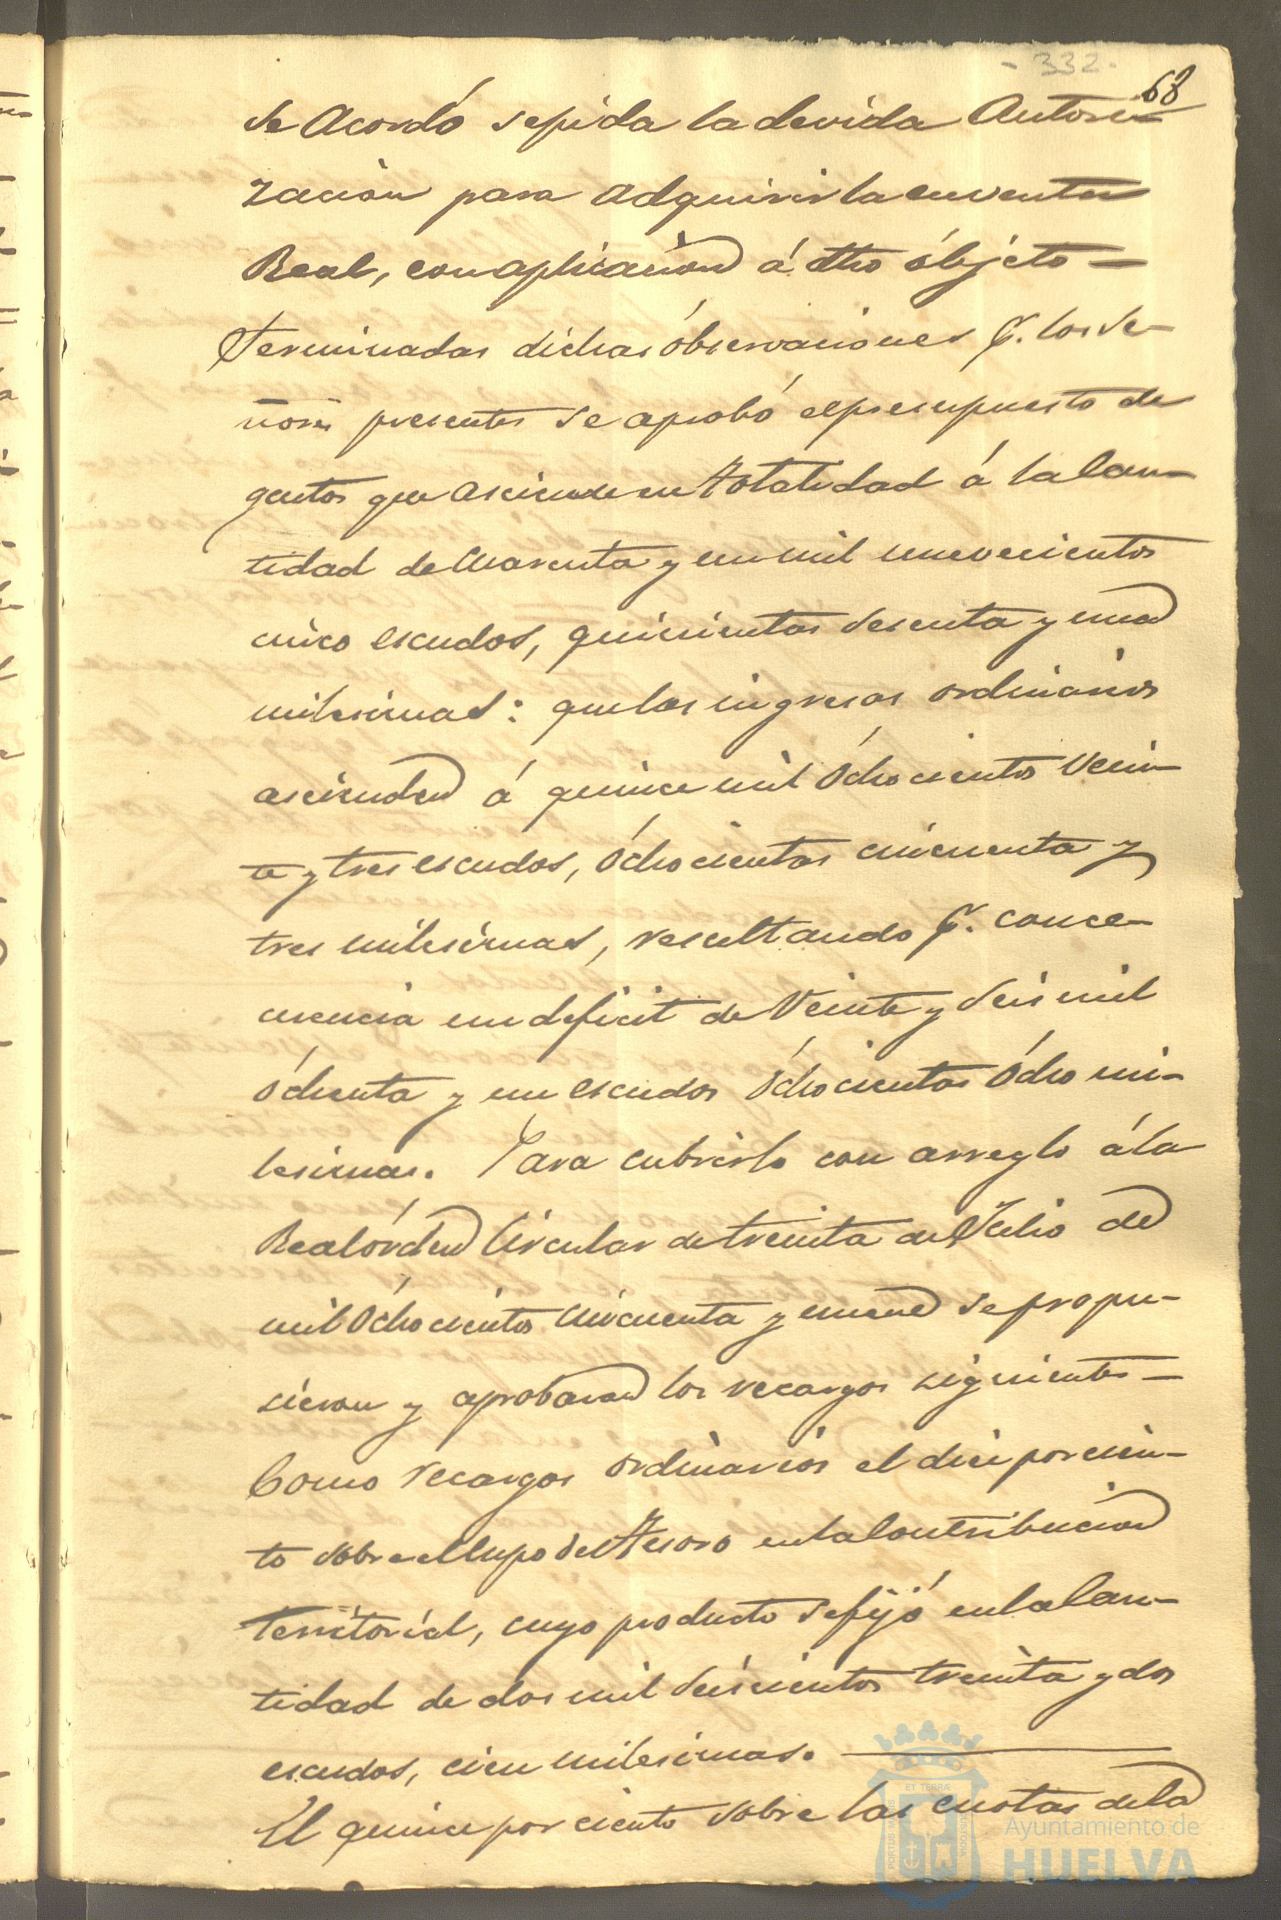 - 332 -
68
se Acordó se pida la devida Autori-
zacion para Adquirir la en venta
Real, con aplicacion á dho óbjeto —
Terminadas dichas óbservaciones p.r los Se-
ñores presentes se aprobó el presupuesto de
gastos que asciende en totalidad á la Can-
tidad de Cuarenta y un mil nuevecientos
cinco escudos, quinientas sesenta y una
milesimas: que los ingresos ordinarios
ascienden á quince mil Óchocientos Vein-
te y tres escudos, óchocientas cincuenta y
tres milesimas, resultando p.r conce-
cuencia un deficit de Veinte y Seis mil
óchenta y un escudos óchocientas ócho mi-
lesimas. Para cubrirlo con arreglo á la
Real órden Circular de treinta de Julio de
mil óchocientos Cincuenta y nueve se propu-
sieron y aprobaron los recargos siguientes —
Como recargos ordinarios el diez por cien-
to sobre el Cupo del Tesoro en la Contribucion
Territorial, cuyo producto se fijó en la Can-
tidad de dos mil Seiscientos treinta y dos
escudos, cien milesimas. —
El quince por ciento sobre las cuotas de la
ET TERRÆ
PORTUS MARIS
CUSTODIA
Ayuntamiento de
HUELVA